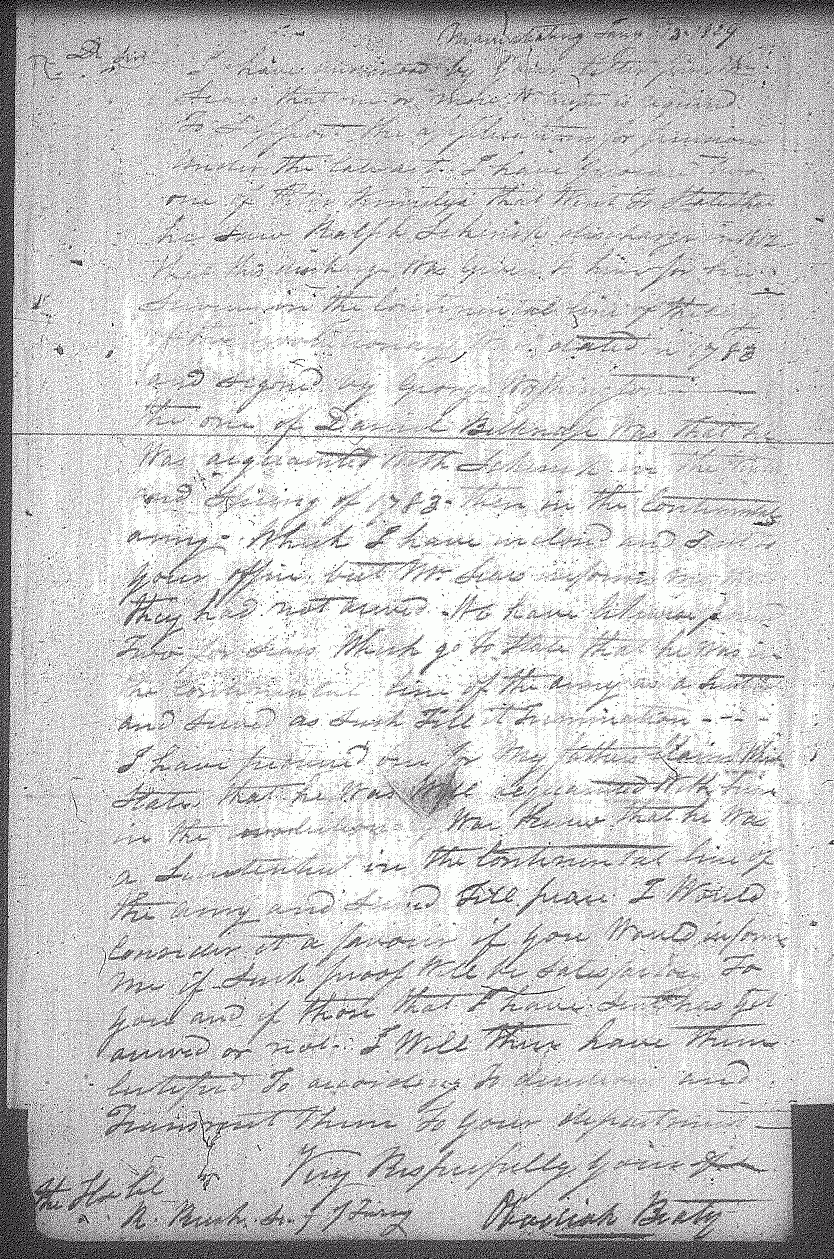 Jany 1829
Dr Sir I have received by your letter from Mr
Sears that one or more Witness is required
To Support the applications for pensions
under the late act. I have procured Two
one of that went To State that
he Saw Ralph Schenck discharge in 1812
that this discharge Was given to him for his
Services in the Continental line of the army
of the revolutionary, dated in 1783
and signed by George Washington
the one of Daniel Belknap Was that he
Was acquainted With Schenck in the
and Spring of 1783 then in the Continental
army. Which I have inclosed and Sent to
your office. but Mr. Sears informs me that
they had not arived. We have likewise
Two for Sears Which go to State that he Was in
the continental line of the army as a
and Served as Such Till it Termination - - -
I have procured one for My fathers Claim Which
States that he Was Well acquainted With him
in the revolutionary War knew that he Was
a in the Continental line of
the army and Served Till peace I Would
Consider it a favour if you Would inform
me if Such proof Will be Satisfactory To
you and if those that I have Sent has Yet
arived or not. I Will then have them
Certified To according To directions and
Transmit them To your department
Very Respectfully Yours &c
the Honbl
R. Rush. Sec. of Treasy Obadiah Beaty